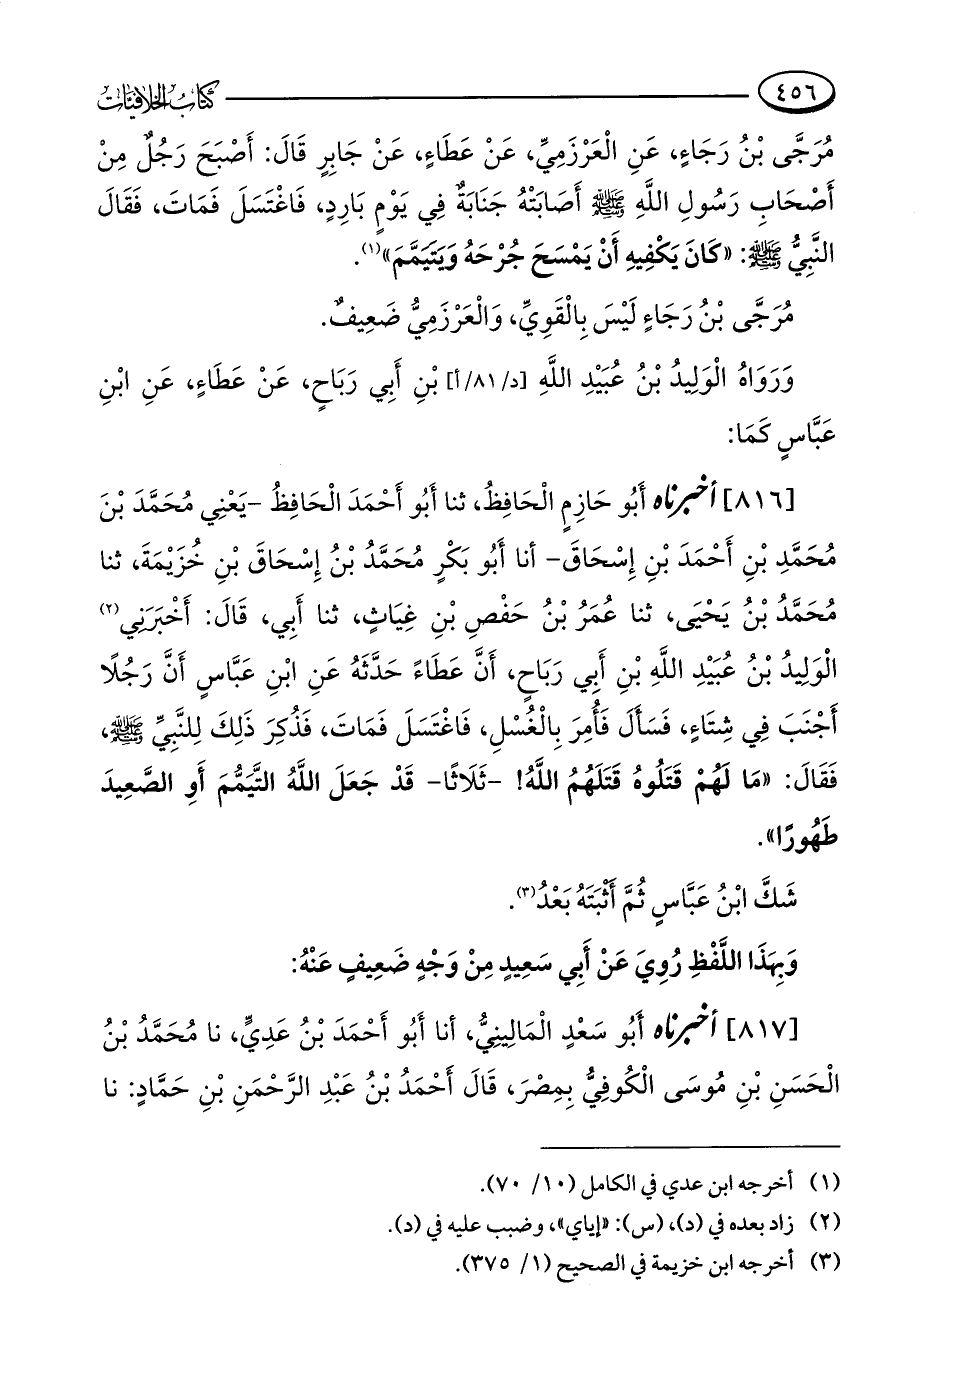 ٤٥٦ كتاب الخلافيات
مُرَجَّى بْنُ رَجَاءٍ، عَنِ الْعَرْزَمِيِّ، عَنْ عَطَاءٍ، عَنْ جَابِرٍ قَالَ: أَصْبَحَ رَجُلٌ مِنْ
أَصْحَابِ رَسُولِ اللَّهِ ﷺ أَصَابَتْهُ جَنَابَةٌ فِي يَوْمٍ بَارِدٍ، فَاغْتَسَلَ فَمَاتَ، فَقَالَ
النَّبِيُّ ﷺ: «كَانَ يَكْفِيهِ أَنْ يَمْسَحَ جُرْحَهُ وَيَتَيَمَّمَ»(١).
مُرَجَّى بْنُ رَجَاءٍ لَيْسَ بِالْقَوِيِّ، وَالْعَرْزَمِيُّ ضَعِيفٌ.
وَرَوَاهُ الْوَلِيدُ بْنُ عُبَيْدِ اللَّهِ [د/٨١/أ] بْنِ أَبِي رَبَاحٍ، عَنْ عَطَاءٍ، عَنِ ابْنِ
عَبَّاسٍ كَمَا:
[٨١٦] أخبرناه أَبُو حَازِمٍ الْحَافِظُ، ثنا أَبُو أَحْمَدَ الْحَافِظُ -يَعْنِي مُحَمَّدَ بْنَ
مُحَمَّدِ بْنِ أَحْمَدَ بْنِ إِسْحَاقَ- أنا أَبُو بَكْرٍ مُحَمَّدُ بْنُ إِسْحَاقَ بْنِ خُزَيْمَةَ، ثنا
مُحَمَّدُ بْنُ يَحْيَى، ثنا عُمَرُ بْنُ حَفْصِ بْنِ غِيَاثٍ، ثنا أَبِي، قَالَ: أَخْبَرَنِي(٢)
الْوَلِيدُ بْنُ عُبَيْدِ اللَّهِ بْنِ أَبِي رَبَاحٍ، أَنَّ عَطَاءً حَدَّثَهُ عَنِ ابْنِ عَبَّاسٍ أَنَّ رَجُلًا
أَجْنَبَ فِي شِتَاءٍ، فَسَأَلَ فَأُمِرَ بِالْغُسْلِ، فَاغْتَسَلَ فَمَاتَ، فَذُكِرَ ذَلِكَ لِلنَّبِيِّ ﷺ،
فَقَالَ: «مَا لَهُمْ قَتَلُوهُ قَتَلَهُمُ اللَّهُ! -ثَلَاثًا- قَدْ جَعَلَ اللَّهُ التَّيَمُّمَ أَوِ الصَّعِيدَ
طَهُورًا».
شَكَّ ابْنُ عَبَّاسٍ ثُمَّ أَثْبَتَهُ بَعْدُ(٣).
وَبِهَذَا اللَّفْظِ رُوِيَ عَنْ أَبِي سَعِيدٍ مِنْ وَجْهٍ ضَعِيفٍ عَنْهُ:
[٨١٧] أخبرناه أَبُو سَعْدٍ الْمَالِينِيُّ، أنا أَبُو أَحْمَدَ بْنُ عَدِيٍّ، نا مُحَمَّدُ بْنُ
الْحَسَنِ بْنِ مُوسَى الْكُوفِيُّ بِمِصْرَ، قَالَ أَحْمَدُ بْنُ عَبْدِ الرَّحْمَنِ بْنِ حَمَّادٍ: نا
(١) أخرجه ابن عدي في الكامل (١٠/ ٧٠).
(٢) زاد بعده في (د)، (س): «إياي»، وضبب عليه في (د).
(٣) أخرجه ابن خزيمة في الصحيح (١/ ٣٧٥).